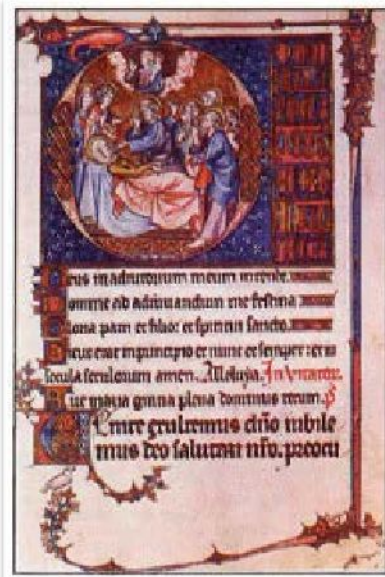 eus in adiutorium meum intende.
omine ad adiuuandum me festina
loria patri et filio: et spiritui sancto.
icut erat in principio et nunc et semper: et in
secula seculorum amen. Alleluya. In
ue maria gratia plena dominus tecum. p̄s
Emite exultemus dño iubile
mus deo salutari nr̄o. preocu